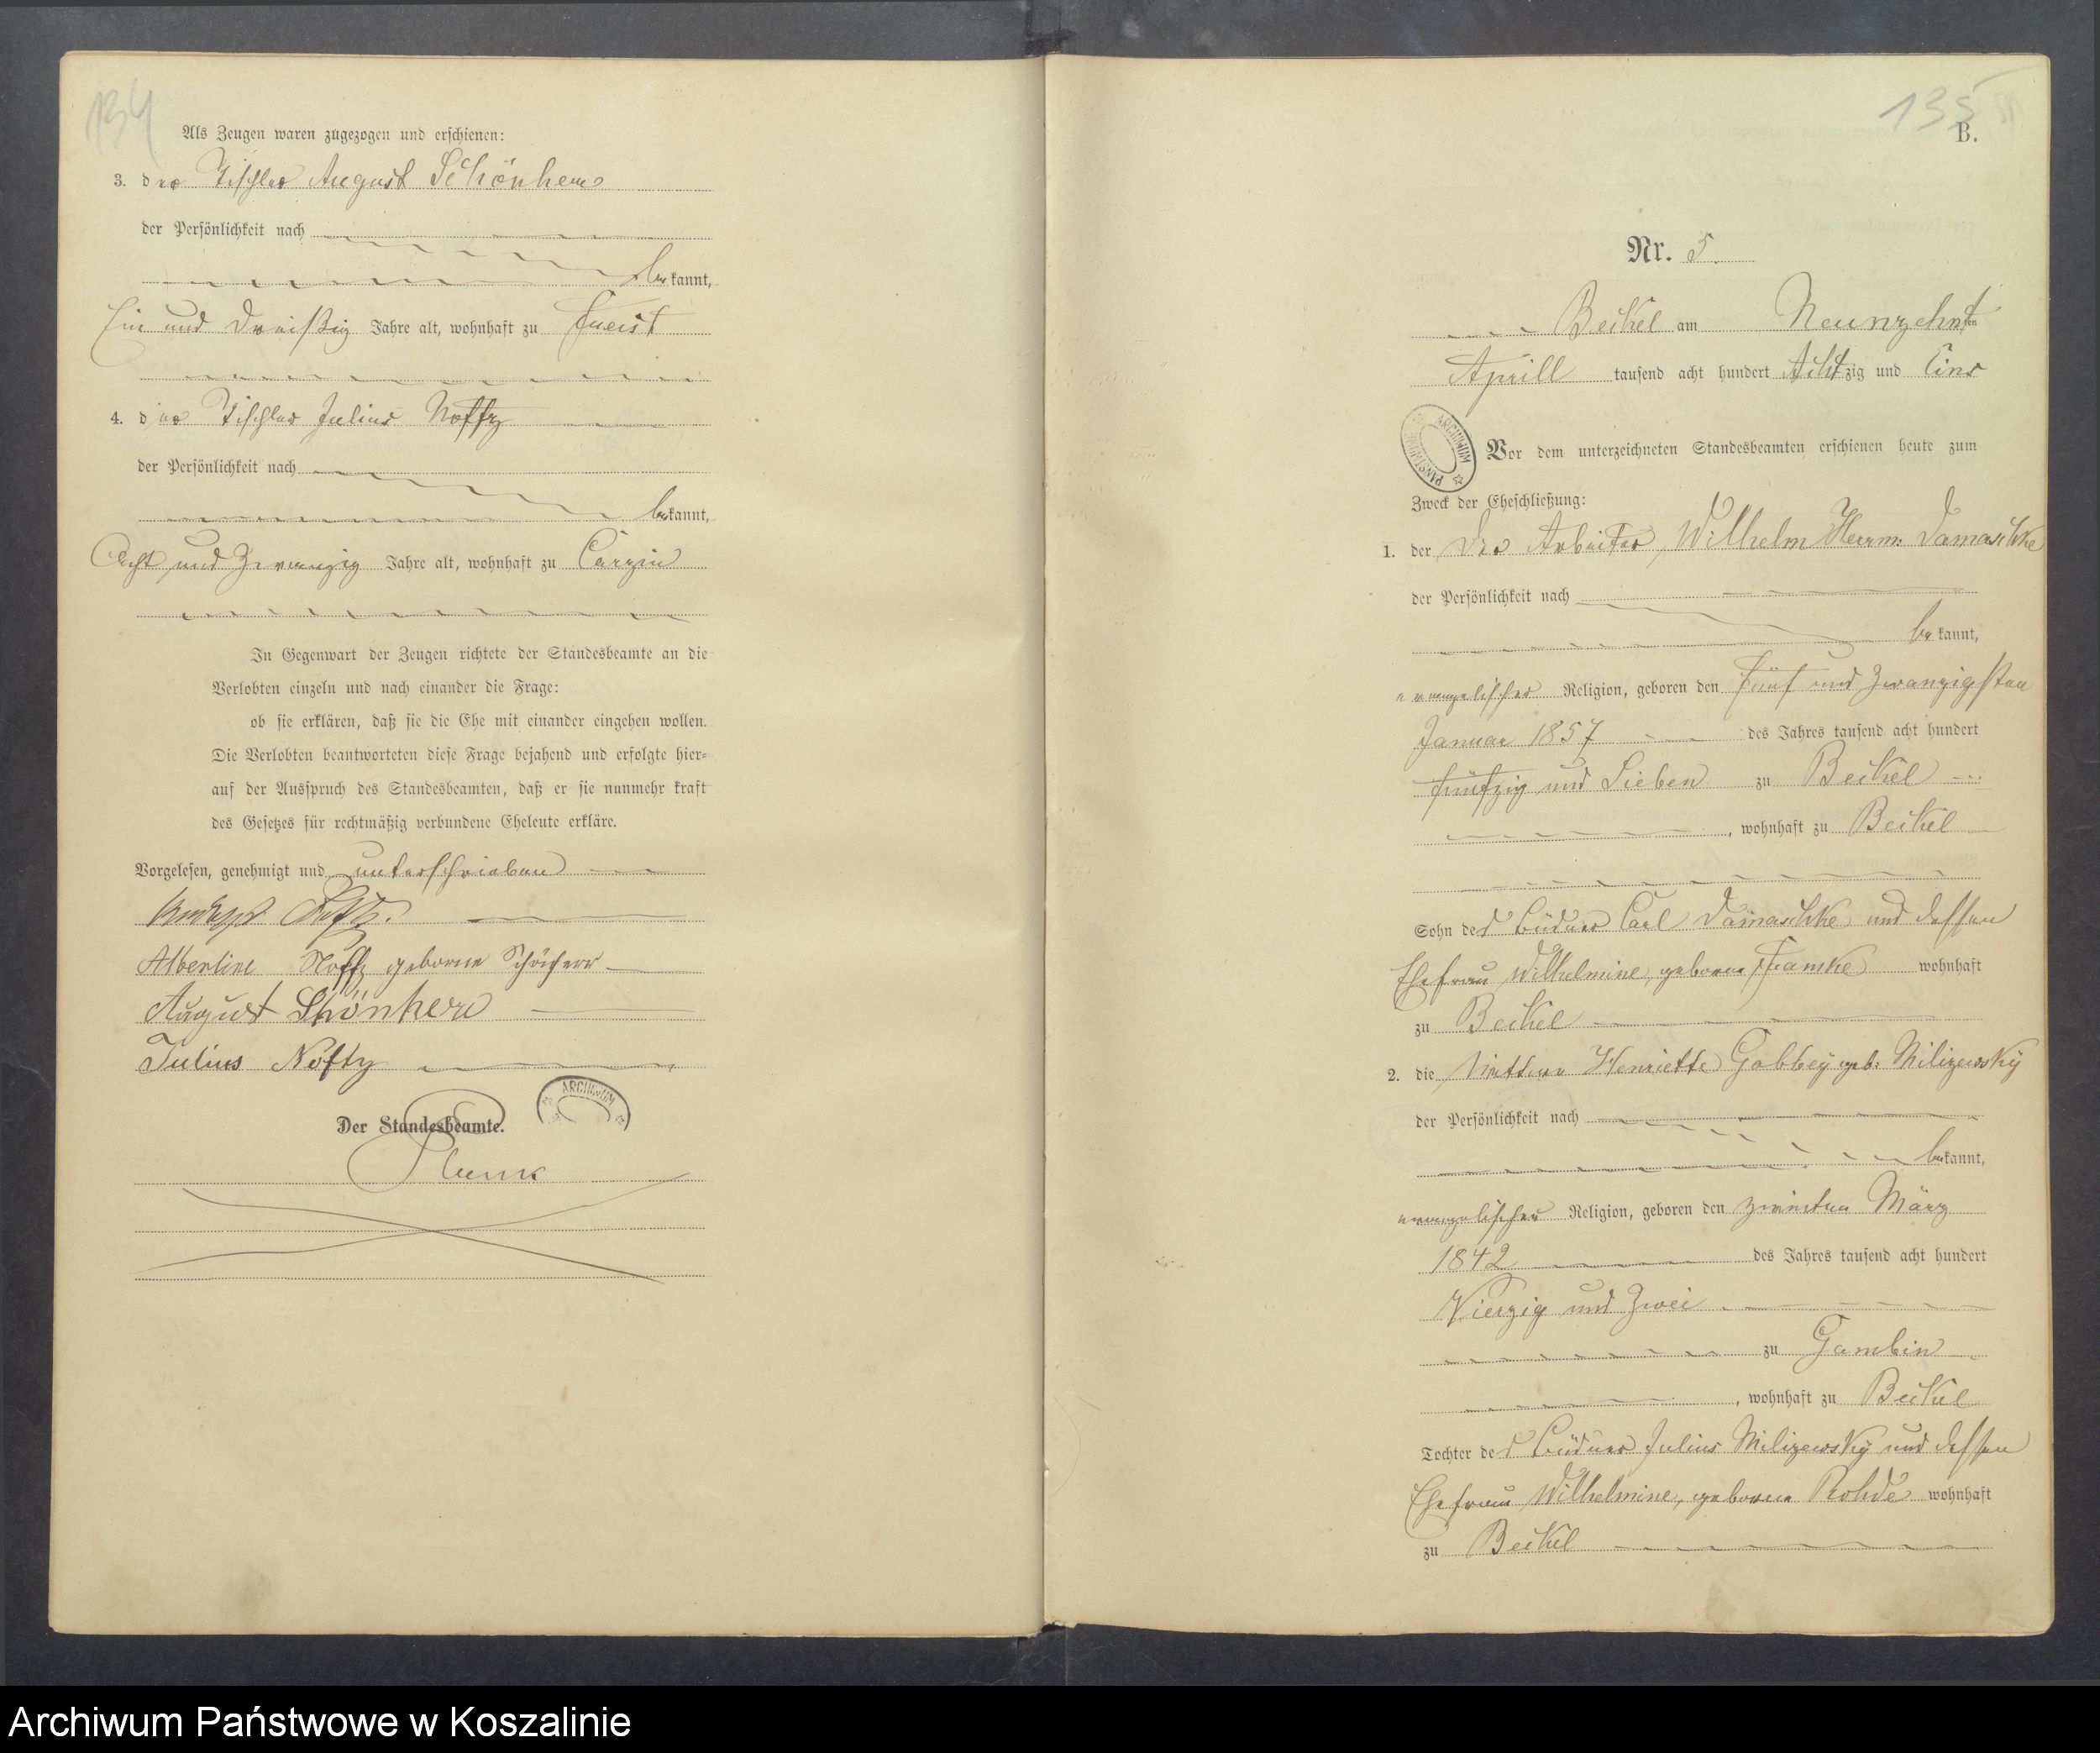 134
Als Zeugen waren zugezogen und erschienen:
3. der Tischler August Schönherr
der Persönlichkeit nach
bekannt,
Ein und Dreißig Jahre alt, wohnhaft zu Fuerst
4. der Tischler Julius Noffz
der Persönlichkeit nach
bekannt,
Acht und Zwanzig Jahre alt, wohnhaft zu Carzin
In Gegenwart der Zeugen richtete der Standesbeamte an die
Verlobten einzeln und nach einander die Frage:
ob sie erklären, daß sie die Ehe mit einander eingehen wollen.
Die Verlobten beantworteten diese Frage bejahend und erfolgte hier-
auf der Ausspruch des Standesbeamten, daß er sie nunmehr kraft
des Gesetzes für rechtmäßig verbundene Eheleute erkläre.
Vorgelesen, genehmigt und unterschrieben
Albertine Noffz geborne
August Shönherr
Julius Noftz
ARCHIWUM
Der Standesbeamte.
135
B.
Nr. 5.
Beckel am Neunzehnten
Aprill tausend acht hundert Achtzig und Eins
ARCHIWUM PAŃSTWOWE
Vor dem unterzeichneten Standesbeamten erschienen heute zum
Zweck der Eheschließung:
1. der Der Arbeiter, Wilhelm Herrm: Damaschke
der Persönlichkeit nach
bekannt,
evangelischer Religion, geboren den Fünf und Zwanzigsten
Januar 1857 des Jahres tausend acht hundert
fünfzig und Sieben zu Beckel
, wohnhaft zu Beckel
Sohn des Büdner Carl Damaschke und dessen
Ehefrau Wilhelmine, geborne wohnhaft
zu Beckel
2. die Wittwe Henriette Gabbey geb: Milizewsky
der Persönlichkeit nach
bekannt,
evangelischer Religion, geboren den zweiten März
1842 des Jahres tausend acht hundert
Vierzig und Zwei
zu Gambin
, wohnhaft zu Beckel
Tochter des Büdner Julius Milizewsky und dessen
Ehefrau Wilhelmine, geborne Rohde wohnhaft
zu Beckel
Archiwum Państwowe w Koszalinie